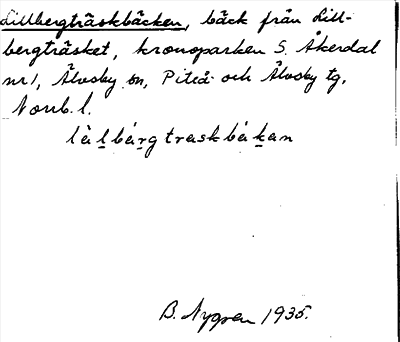 Lillbergträskbäcken, bäck från Lill-
bergträsket, kronoparken S. Åkerdal
nr 1, Älvsby sn, Piteå och Älvsby tg,
Norrb. l.
B. Nygren 1935.